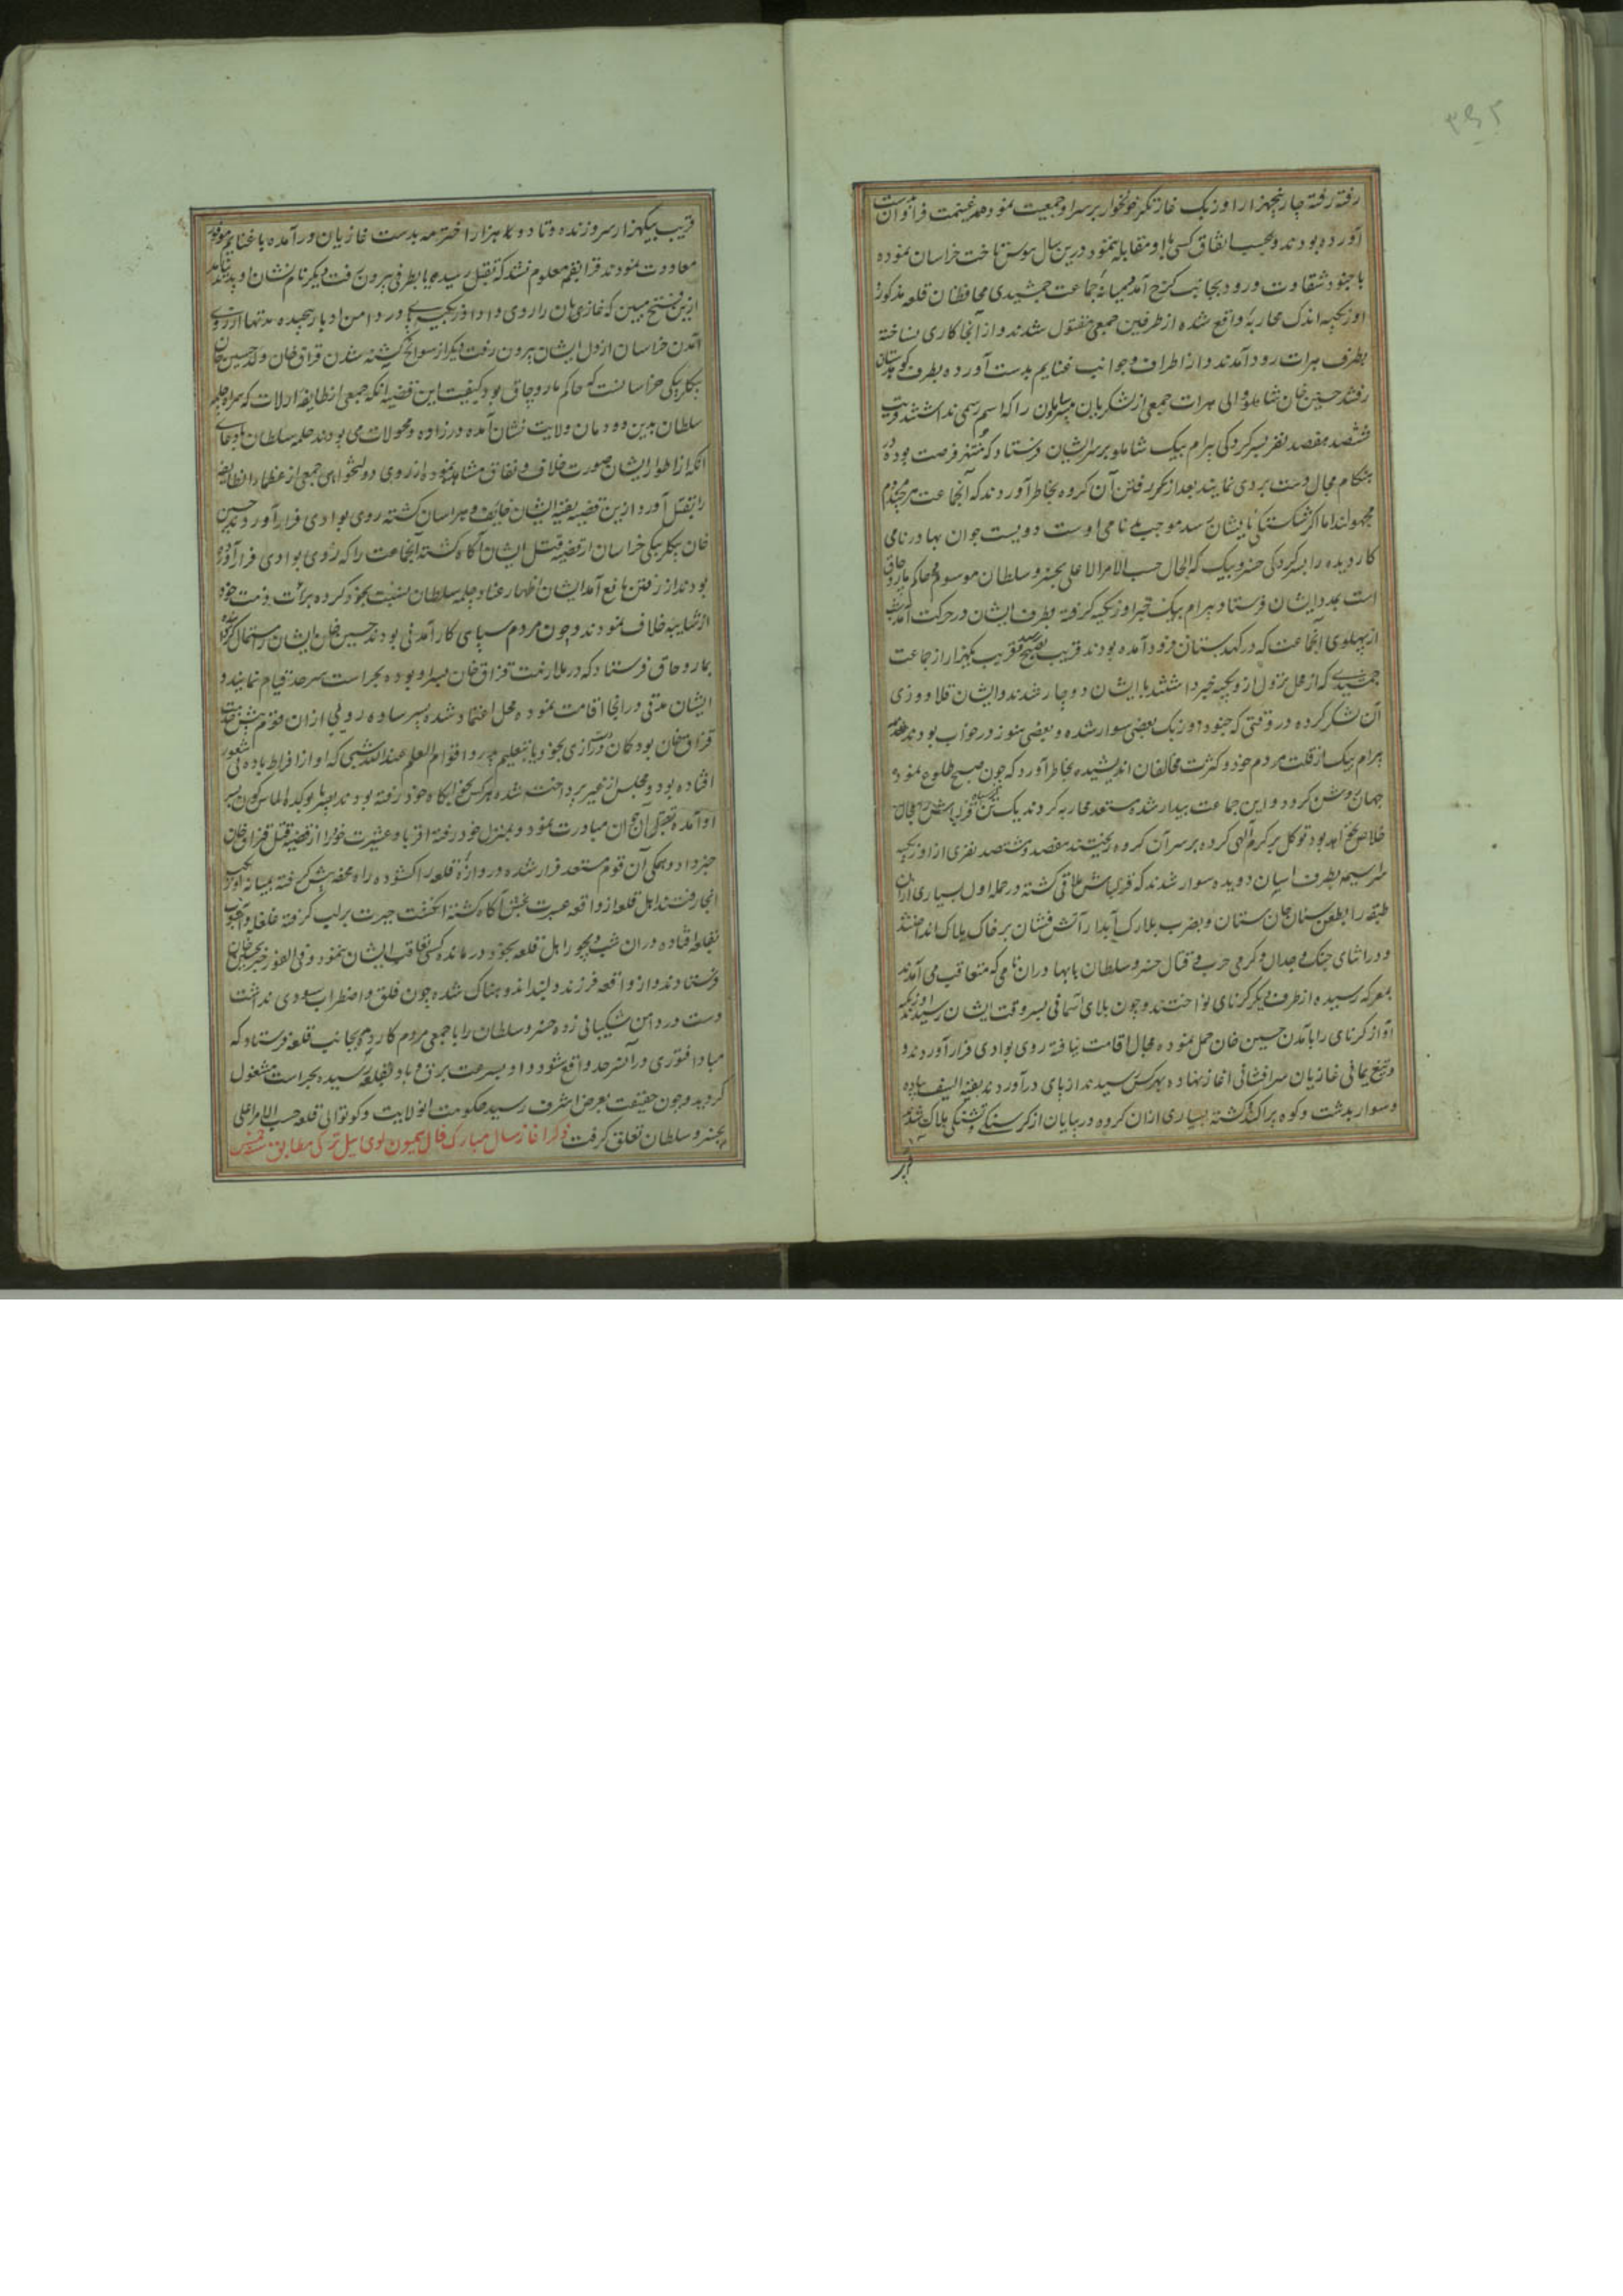 رفته رفته چار پنجهزار اوزبک غارتگر خونخوار بر سر او جمعیت نموده غنیمت فراوان بدست
آورده بودند و بحسب اتفاق کسی با او مقابله ننمود درین سال هوس تاخت خراسان نموده
با جنود شقاوت ورود بجانب کرخ آمد میانه جماعت جمشیدی محافظان قلعه مذکور و
اوزبکیه اندک محاربه واقع شده از طرفین جمعی مقتول شدند و از آنجا کاری نساخته
بطرف هرات رود آمدند و از اطراف و جوانب غنایم بدست آورده بطرف کوهستان
رفتند حسین خان شاملو والی هرات جمعی از لشکریان و ملازمان را که اسم و رسمی نداشتند قریب
ششصد هفصد نفر بسرکردگی بهرام بیک شاملو بر سر ایشان فرستاد که منتهز فرصت بوده در
هنکام مجال دست بردی نمایند بعد از رفتن آن کروه بخاطر آوردند که آنجماعت هر چند مردم
مجهولند اما اکر شکستکی بایشان رسد موجب بی نامی اوست دویست جوان بهادر نامی
کار دیده را بسرکردکی خسرو بیک که الحال حسب الامر الاعلی بخسرو سلطان موسوم و حاکم ماروچاق
است بمدد ایشان فرستاد بهرام بیک خبر اوزبکیه کرفته بطرف ایشان در حرکت آمد شب
از پهلوی آنجماعت که در کهدستان فرود آمده بودند قریب بصبح قریب بیکهزار از جماعت
جمشیدی که از محل نزول اوزبکیه خبر داشتند با ایشان دوچار شدند و ایشان قلاووزی
آن لشکر کرده در وقتی که جنود اوزبک بعضی سوار شده و بعضی هنوز در خواب بودند
بهرام بیک از قلت مردم خود و کثرت مخالفان اندیشیده بخاطر آورد که چون صبح طلوع نمود و
جهان روشن کردد و این جماعت بیدار شده مستعد محاربه کردند یک تن قزلباش را مجال
خلاص نخواهد بود توکل بر کرم الهی کرده بر سر آن کروه ریختند هفصد هشتصد نفری از اوزبکیه
سراسیمه بطرف اسبان دویده سوار شدند که قزلباش ملاقی کشته در حمله اول بسیاری از آن
طبقه را بطعن سنان جان ستان و بضرب بلارک آبدار آتش فشان بر خاک هلاک انداختند
و در اثنای جنک و جدال و کرمی حرب و قتال خسرو سلطان با بهادران نامی که متعاقب می آمدند
بمعرکه رسیده از طرف دیکر کرنای نواختند و چون بلای آسمانی بسر وقت ایشان رسیدند اوزبکیه
آواز کرنای را بآمدن حسین خان حمل نموده مجال اقامت نیافته روی بوادی فرار آوردند و
و تیغ یمانی غازیان سرافشانی آغاز نهاده بهر کس رسیدند از پای درآوردند بقیة السیف پیاده
و سوار بدشت و کوه پراکنده کشته بسیاری از آن کروه در بیابان از کرسنکی و تشنکی هلاک شدند
قریب بیکهزار سر و زنده و تا دو هزار اخترمه بدست غازیان درآمده با غنایم موفور
معاودت نمودند قرابقم معلوم نشد که بقتل رسیده یا بطرفی بیرون رفت دیکر نام و نشان او پدید نیامد
ازین فتح مبین که غازیان را روی داد اوزبکیه پا در دامن ادبار پیچیده مدتها آرزوی
آمدن خراسان از دل ایشان بیرون رفت دیکر از سوانح کشته شدن قزاق خان ولد حسین خان
بیکلربیکی خراسانست که حاکم ماروچاق بود کیفیت این قضیه آنکه جمعی از طایفه ارلات که همراه چلمه
سلطان بدین دودمان ولایت نشان آمده در زاوه و محولات می بودند چلمه سلطان بادعای
آنکه از اطوار ایشان صورت خلاف و نفاق مشاهده نموده از روی دولتخواهی جمعی از عظماء آنطایفه
را بقتل آورد ازین قضیه بقیه ایشان خایف و هراسان کشته روی بوادی فرار آوردند حسین
خان بیکلربیکی خراسان از قضیه قتل ایشان آکاه کشته آنجماعت را که روی بوادی فرار آورده
بودند از رفتن مانع آمد ایشان اظهار عناد چلمه سلطان نسبت بخود کرده برائت ذمت خود
از شایبه خلاف نمودند و چون مردم سپاهی کارآمدنی بودند حسین خان ایشان را استمالت کرده
بماروچاق فرستاد که در ملازمت قزاق خان پسر او بوده بحراست سرحد قیام نمایند و
ایشان مدتی در آنجا اقامت نموده محل اعتماد شده پسر ساده رویی از آن قوم پیش خدمت
قزاق خان بود کمان دست درازی بخود یا بتعلیم پدر و اقوام العلم عند الله شبی که او از افراط باده بی شعور
افتاده بود و مجلس از غیر پرداخت شده هر کس بخوابکاه خود رفته بودند بضربت کزلک الماس کون بسر
او آمده بقتل آن جوان مبادرت نمود و بمنزل خود رفته اقربا و عشیرت خود را از قضیه قتل قزاق خان
خبر داد و همکی آن قوم مستعد فرار شده دروازه قلعه را کشوده راه پیش کرفته بمیانه اوزبکیه
آنجا رفتند اهل قلعه از واقعه عبرت بخش آکاه کشته انکشت حیرت بر لب کرفته غلغله و آشوب
بقلعه افتاده در آن شب دیجور اهل قلعه بخود درمانده کسی تعاقب ایشان ننمود و فی الفور خبر بحسین خان
فرستادند و از واقعه فرزند دلبند اندوهناک شده چون قلق و اضطراب سودی نداشت
دست در دامن شکیبائی زده خسرو سلطان را با جمعی مردم کاری بجانب قلعه فرستاد که
مبادا فتوری در آن سرحد واقع شود و او بسرعت برق و باد بقلعه رسیده بحراست مشغول
کردید و چون حقیقت بعرض اشرف رسید حکومت آنولایت و کوتوالی قلعه حسب الامر اعلی
بخسرو سلطان تعلق کرفت ذکر آغاز سال مبارک فال همیون لوی ئیل ترکی مطابق سنه